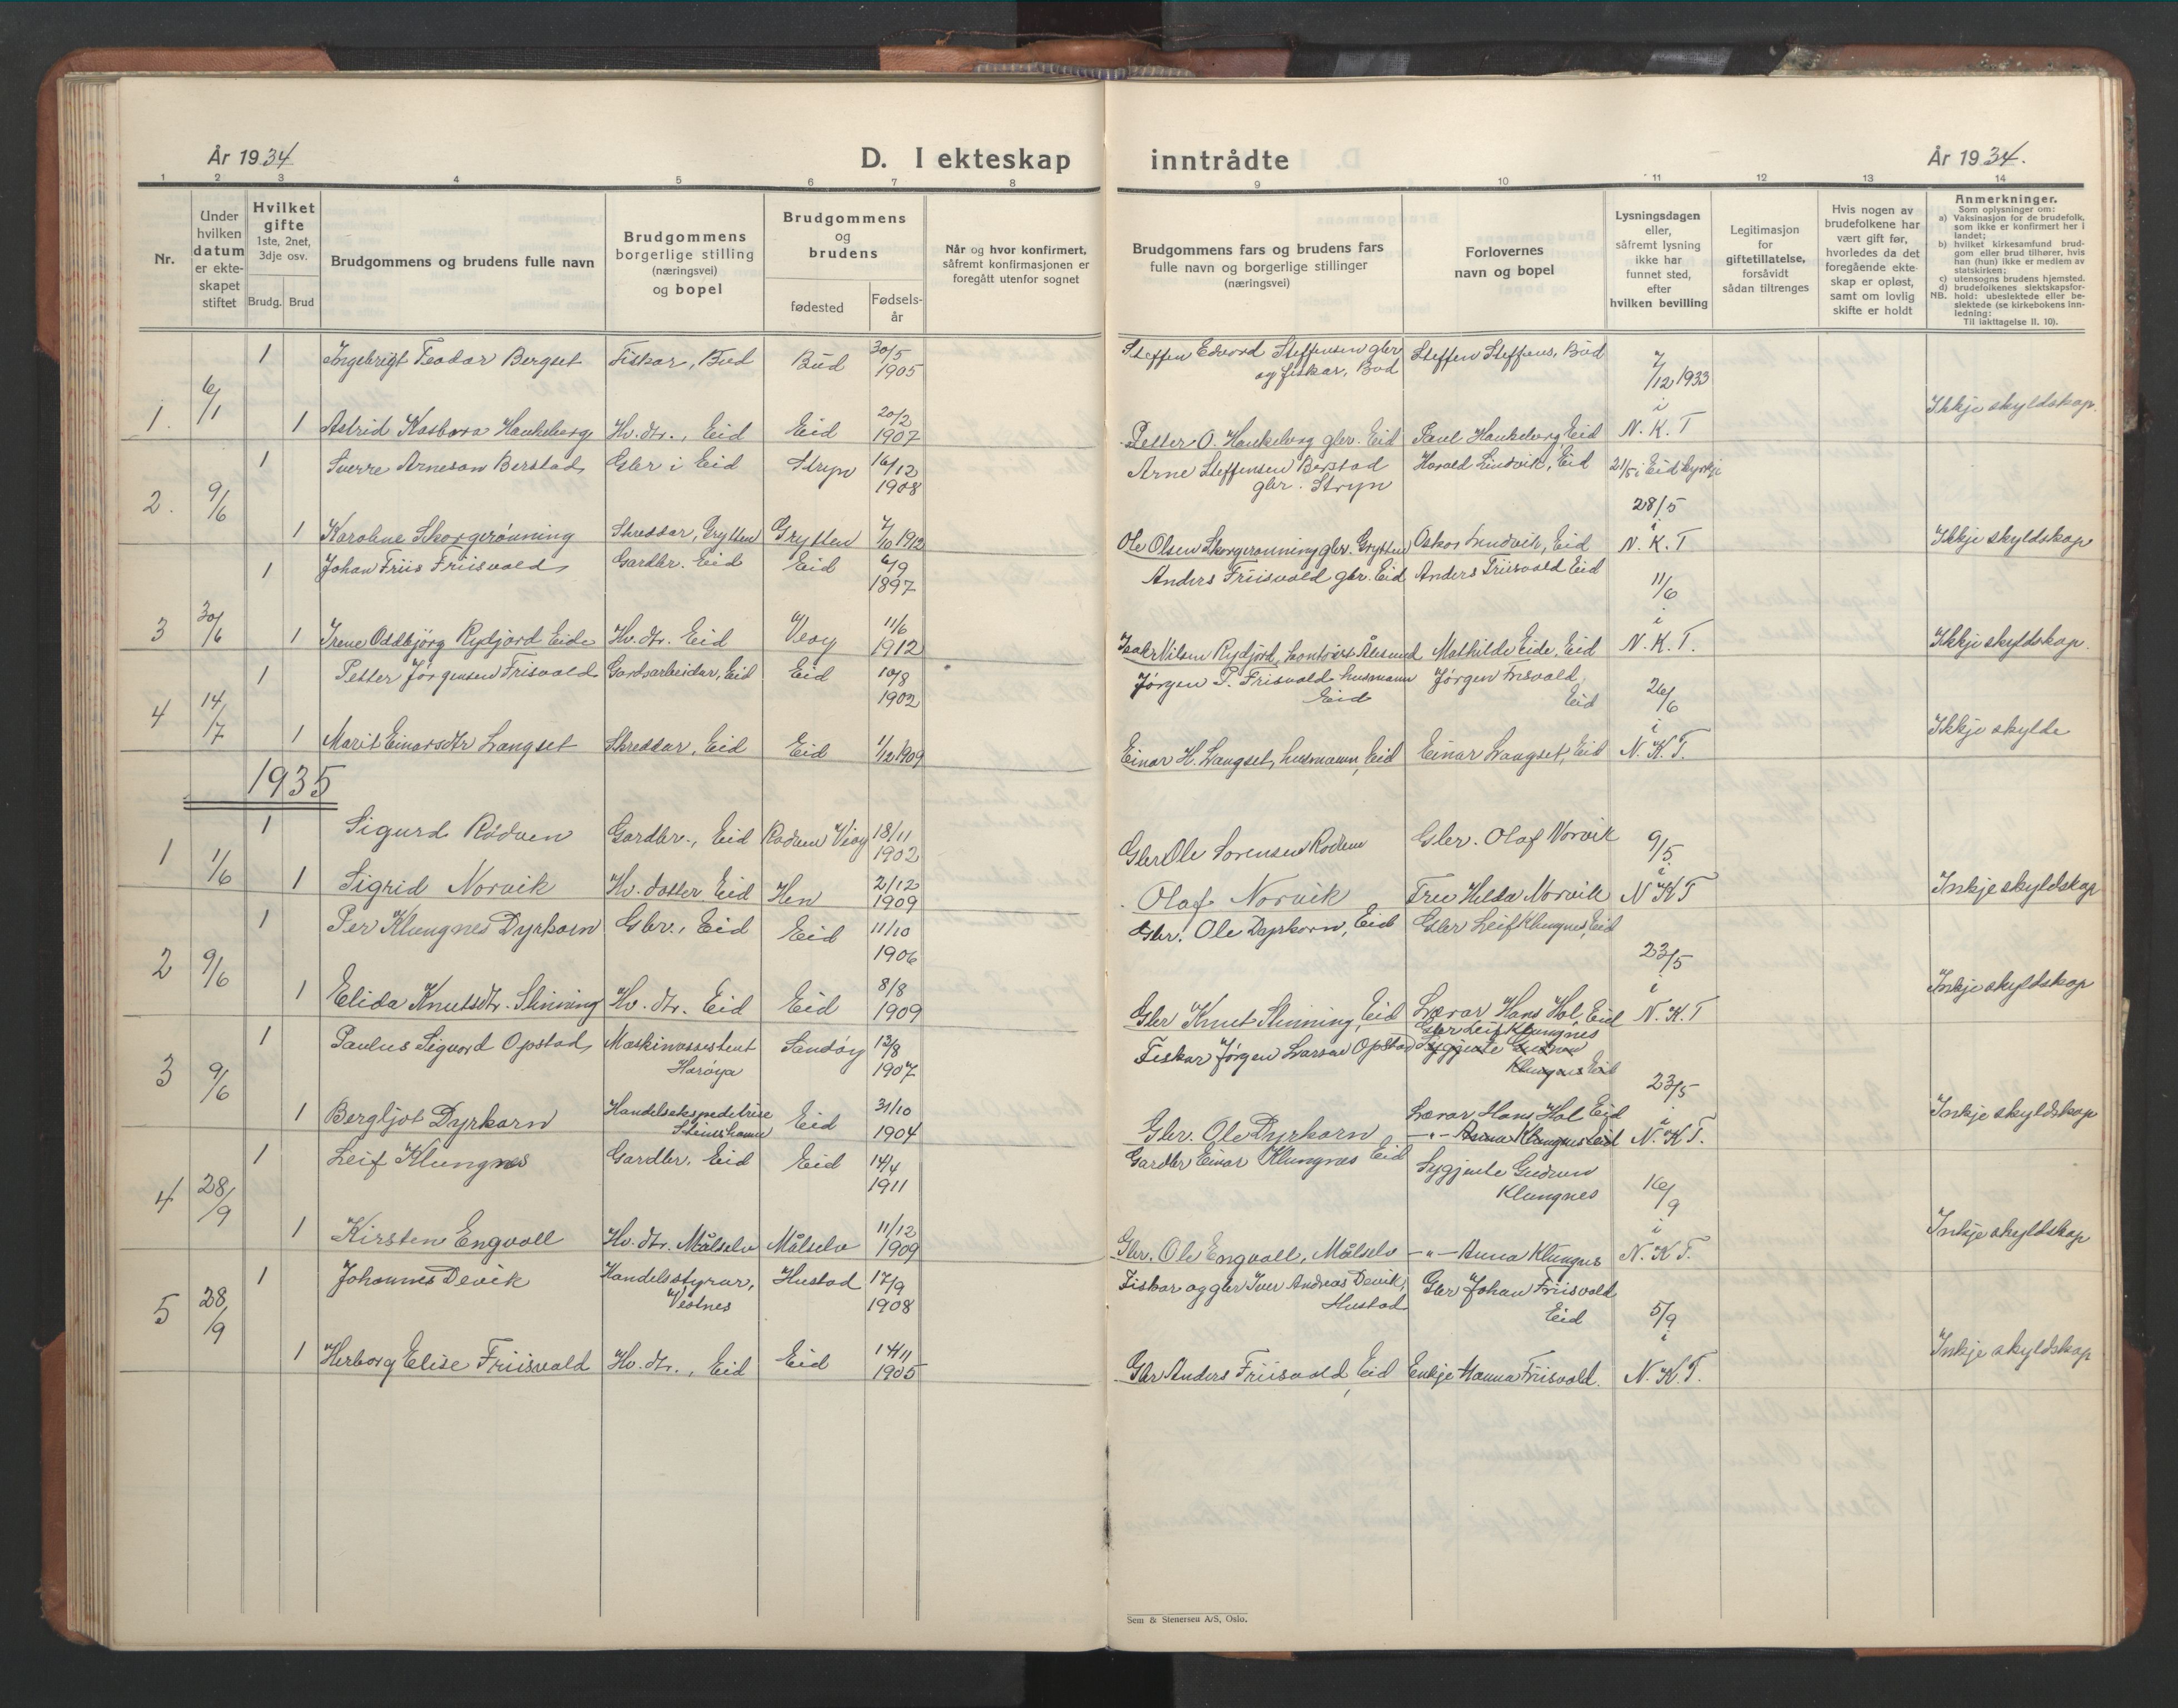 År 1934
D. I ekteskap inntrådte
År 1934.
1 2 3 4 5 6 7 8 9 10 11 12 13 14
Nr.
Under hvilken datum er ekte-skapet stiftet
Hvilket gifte
1ste, 2net, 3dje osv.
Brudg. Brud
Brudgommens og brudens fulle navn
Brudgommens
borgerlige stilling
(næringsvei)
og bopel
Brudgommens
og
brudens
fødested
Fødsels-
år
Når og hvor konfirmert,
såfremt konfirmasjonen er
foregått utenfor sognet
Brudgommens fars og brudens fars
fulle navn og borgerlige stillinger
(næringsvei)
Forlovernes
navn og bopel
Lysningsdagen
eller,
såfremt lysning
ikke har
funnet sted,
efter
hvilken bevilling
Legitimasjon
for
giftetillatelse,
forsåvidt
sådan tiltrenges
Hvis nogen av
brudefolkene har
vært gift før,
hvorledes da det
foregående ekte-
skap er opløst,
samt om lovlig
skifte er holdt
Anmerkninger.
Som oplysninger om:
a) Vaksinasjon for de brudefolk,
som ikke er konfirmert her i
landet;
b) hvilket kirkesamfund brud-
gom eller brud tilhører, hvis
han (hun) ikke er medlem av
statskirken;
c) utensogns brudens hjemsted.
d) brudefolkenes slektskapsfor-
NB. hold: ubeslektede eller be-
slektede (se kirkebokens inn-
ledning:
Til iakttagelse II. 10).
1 Ingebrigt Teodor Bergset Fiskar, Bud Bud 30/5 1905 Steffen Edvard Steffensen gbr og fiskar, Bud Steffen Steffens, Bud 7/12 1933
1. 6/1 1 Astrid Kasbora Haukeberg Hv. dtr., Eid Eid 20/2 1907 Petter O. Haukeberg gbr. Eid Paul Haukeberg, Eid i N. K. T Ikkje skyldskap.
1 Sverre Arneson Berstad Gbr i Eid Stryn 16/12 1908 Arne Steffensen Berstad gbr. Stryn Harald Lindvik, Eid 21/5 i Eid kyrkje
2. 9/6 28/5
1 Karoline Skorgerønning Skreddar, Grytten Grytten 7/10 1912 Ole Olsen Skorgerønning gbr. Grytten Oskar Lindvik, Eid i N. K. T Ikkje skyldskap
1 Johan Friis Friisvold Gardbr. Eid Eid 6/9 1897 Anders Friisvold gbr. Eid Anders Friisvold Eid 11/6
3 30/6 1 Irene Oddbjörg Rydjord Eide Hv. dtr. Eid Veøy 11/6 1912 Isak Nilsen Rydjord, kontorist Ålesund Mathilde Eide, Eid i N. K. T. Ikkje skyldskap.
1 Petter Jørgensen Frisvold Gardsarbeidar, Eid Eid 10/8 1902 Jørgen P. Frisvold husmann Eid Jørgen Frisvold, Eid 26/6
4 14/7 1 Marit Einarsdtr Langset Skreddar, Eid Eid 1/12 1909 Einar H. Langset, husmann, Eid Einar Langset, Eid i N. K. T. Ikkje skylde
1935
1 Sigurd Rødven Gardbr., Eid Rødven Veøy 18/11 1902 Gbr Ole Sørensen Rødven Gbr. Olaf Norvik 9/5
1 1/6 1 Sigrid Norvik Hv. dotter. Eid Hen 2/12 1909 Olaf Norvik Fru Helda Norvik i N K T Inkje skyldskap
1 Per Klungnes Dyrkorn Gbr., Eid Eid 11/10 1906 Gbr. Ole Dyrkorn, Eid Gbr Leif Klungnes, Eid
2 9/6 23/5
1 Elida Knutsdtr. Slinning Hv. dtr. Eid Eid 8/8 1909 Gbr Knut Slinning, Eid Lærar Hans Hol Eid i N. K. T Inkje skyldskap
1 Paulus Sigvard Opstad Maskinassistent Harøya Sandøy 13/8 1907 Fiskar Jørgen Larsen Opstad Gbr Leif Klungnes Sygjente Gudrun Klungnes Eid
3 9/6 23/5
1 Bergljot Dyrkorn Handelsekspeditrise Steinshamn Eid 31/10 1904 Gbr. Ole Dyrkorn Lærar Hans Hol Eid -"- Anna Klungnes Eid i N. K T. Inkje skyldskap
1 Leif Klungnes Gardbr. Eid Eid 14/4 1911 Gardbr Einar Klungnes Eid Sygjente Gudrun Klungnes 16/9
4 28/9 1 Kirsten Engvoll Hv. dtr. Målselv Målselv 11/12 1909 Gbr. Ole Engvoll, Målselv -"- Anna Klungnes i N. K T. Inkje skyldskap
1 Johannes Devik Handelsstyrar, Vestnes Hustad 17/9 1908 Fiskar og gbr Iver Andreas Devik, Hustad Gbr Johan Friisvold Eid 5/9
5 28/9 1 Herborg Elise Friisvold Hv. dtr., Eid Eid 14/11 1905 Gbr Anders Friisvold, Eid Enkje Hanna Friisvold. i N. K. T. Inkje skyldskap
Sem & Stenersen A/S, Oslo.